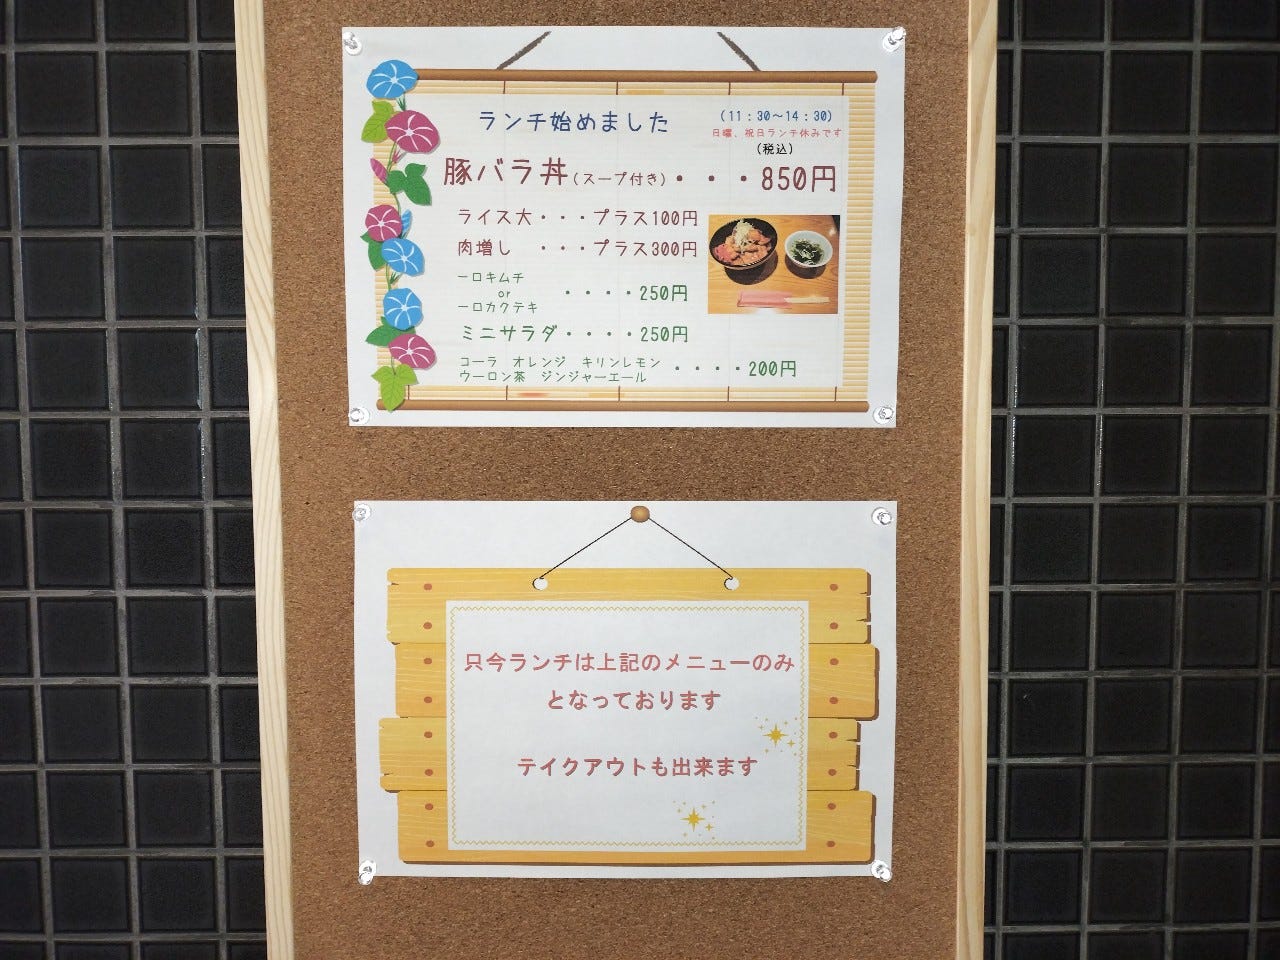 ランチ始めました
(11：30〜14：30)
日曜、祝日ランチ休みです
(税込)
豚バラ丼(スープ付き)・・・850円
ライス大・・・プラス100円
肉増し ・・・プラス300円
一口キムチ
or
一口カクテキ
・・・・250円
ミニサラダ・・・・250円
コーラ オレンジ キリンレモン
ウーロン茶 ジンジャーエール
・・・・200円
只今ランチは上記のメニューのみ
となっております
テイクアウトも出来ます